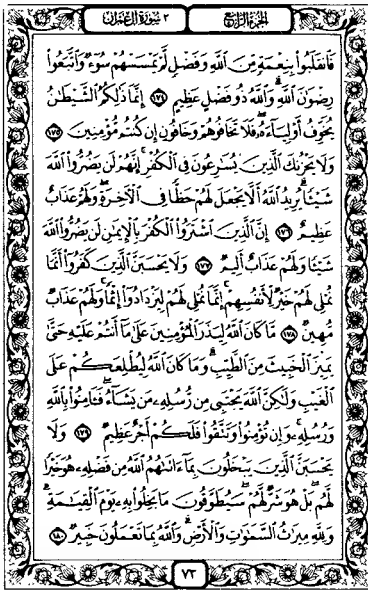 الجزء الرابع
٣ سورة آل عمران
فَٱنقَلَبُوا۟ بِنِعْمَةٍ مِّنَ ٱللَّهِ وَفَضْلٍ لَّمْ يَمْسَسْهُمْ سُوٓءٌ وَٱتَّبَعُوا۟
رِضْوَٰنَ ٱللَّهِ وَٱللَّهُ ذُو فَضْلٍ عَظِيمٍ ١٧٤ إِنَّمَا ذَٰلِكُمُ ٱلشَّيْطَٰنُ
يُخَوِّفُ أَوْلِيَآءَهُۥ فَلَا تَخَافُوهُمْ وَخَافُونِ إِن كُنتُم مُّؤْمِنِينَ ١٧٥
وَلَا يَحْزُنكَ ٱلَّذِينَ يُسَٰرِعُونَ فِى ٱلْكُفْرِ إِنَّهُمْ لَن يَضُرُّوا۟ ٱللَّهَ
شَيْـًٔا يُرِيدُ ٱللَّهُ أَلَّا يَجْعَلَ لَهُمْ حَظًّا فِى ٱلْـَٔاخِرَةِ وَلَهُمْ عَذَابٌ
عَظِيمٌ ١٧٦ إِنَّ ٱلَّذِينَ ٱشْتَرَوُا۟ ٱلْكُفْرَ بِٱلْإِيمَٰنِ لَن يَضُرُّوا۟ ٱللَّهَ
شَيْـًٔا وَلَهُمْ عَذَابٌ أَلِيمٌ ١٧٧ وَلَا يَحْسَبَنَّ ٱلَّذِينَ كَفَرُوٓا۟ أَنَّمَا
نُمْلِى لَهُمْ خَيْرٌ لِّأَنفُسِهِمْ إِنَّمَا نُمْلِى لَهُمْ لِيَزْدَادُوٓا۟ إِثْمًا وَلَهُمْ عَذَابٌ
مُّهِينٌ ١٧٨ مَّا كَانَ ٱللَّهُ لِيَذَرَ ٱلْمُؤْمِنِينَ عَلَىٰ مَآ أَنتُمْ عَلَيْهِ حَتَّىٰ
يَمِيزَ ٱلْخَبِيثَ مِنَ ٱلطَّيِّبِ وَمَا كَانَ ٱللَّهُ لِيُطْلِعَكُمْ عَلَى
ٱلْغَيْبِ وَلَٰكِنَّ ٱللَّهَ يَجْتَبِى مِن رُّسُلِهِۦ مَن يَشَآءُ فَـَٔامِنُوا۟ بِٱللَّهِ
وَرُسُلِهِۦ وَإِن تُؤْمِنُوا۟ وَتَتَّقُوا۟ فَلَكُمْ أَجْرٌ عَظِيمٌ ١٧٩ وَلَا
يَحْسَبَنَّ ٱلَّذِينَ يَبْخَلُونَ بِمَآ ءَاتَىٰهُمُ ٱللَّهُ مِن فَضْلِهِۦ هُوَ خَيْرًا
لَّهُم بَلْ هُوَ شَرٌّ لَّهُمْ سَيُطَوَّقُونَ مَا بَخِلُوا۟ بِهِۦ يَوْمَ ٱلْقِيَٰمَةِ
وَلِلَّهِ مِيرَٰثُ ٱلسَّمَٰوَٰتِ وَٱلْأَرْضِ وَٱللَّهُ بِمَا تَعْمَلُونَ خَبِيرٌ ١٨٠
٧٣